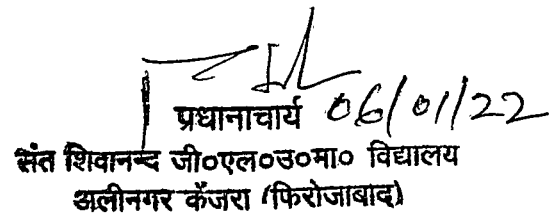 प्रधानाचार्य 06/01/22
संत शिवानन्द जी०एल०उ०मा० विद्यालय
अलीनगर केंजरा (फिरोजाबाद)